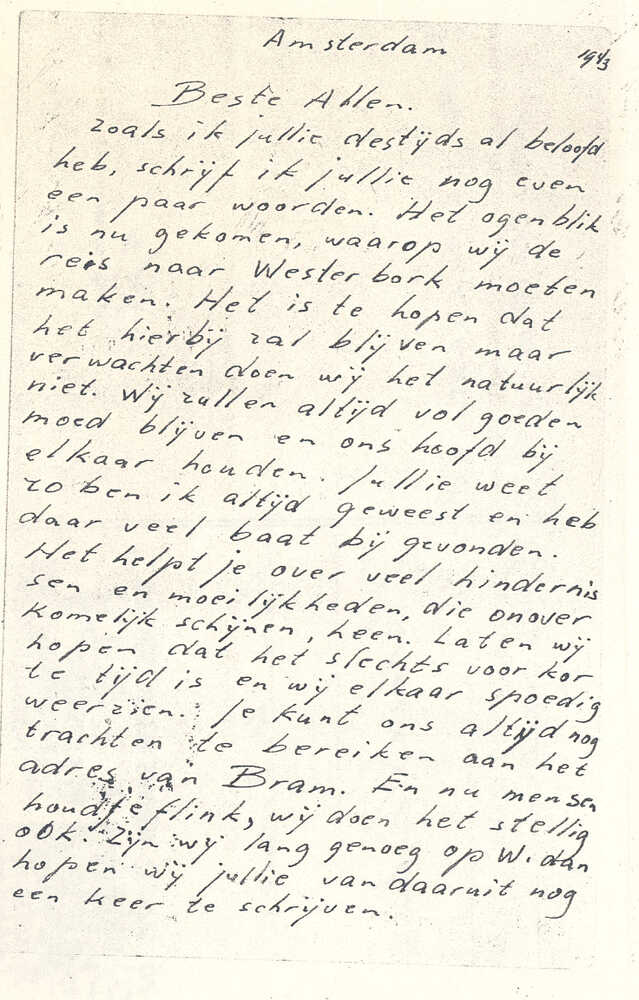 Amsterdam 1943
Beste Allen.
zoals ik jullie destijds al beloofd
heb, schrijf ik jullie nog even
een paar woorden. Het ogenblik
is nu gekomen, waarop wij de
reis naar Westerbork moeten
maken. Het is te hopen dat
het hierbij zal blijven maar
verwachten doen wij het natuurlijk
niet. Wij zullen altijd vol goeden
moed blijven en ons hoofd bij
elkaar houden. Jullie weet
zo ben ik altijd geweest en heb
daar veel baat bij gevonden.
Het helpt je over veel hindernis
sen en moeilijkheden, die onover
komelijk schijnen, heen. Laten wij
hopen dat het slechts voor kor
te tijd is en wij elkaar spoedig
weerzien. Je kunt ons altijd nog
trachten te bereiken aan het
adres van Bram. En nu mensen
houdt je flink, wij doen het stellig
ook. Zijn wij lang genoeg op W. dan
hopen wij jullie van daaruit nog
een keer te schrijven.